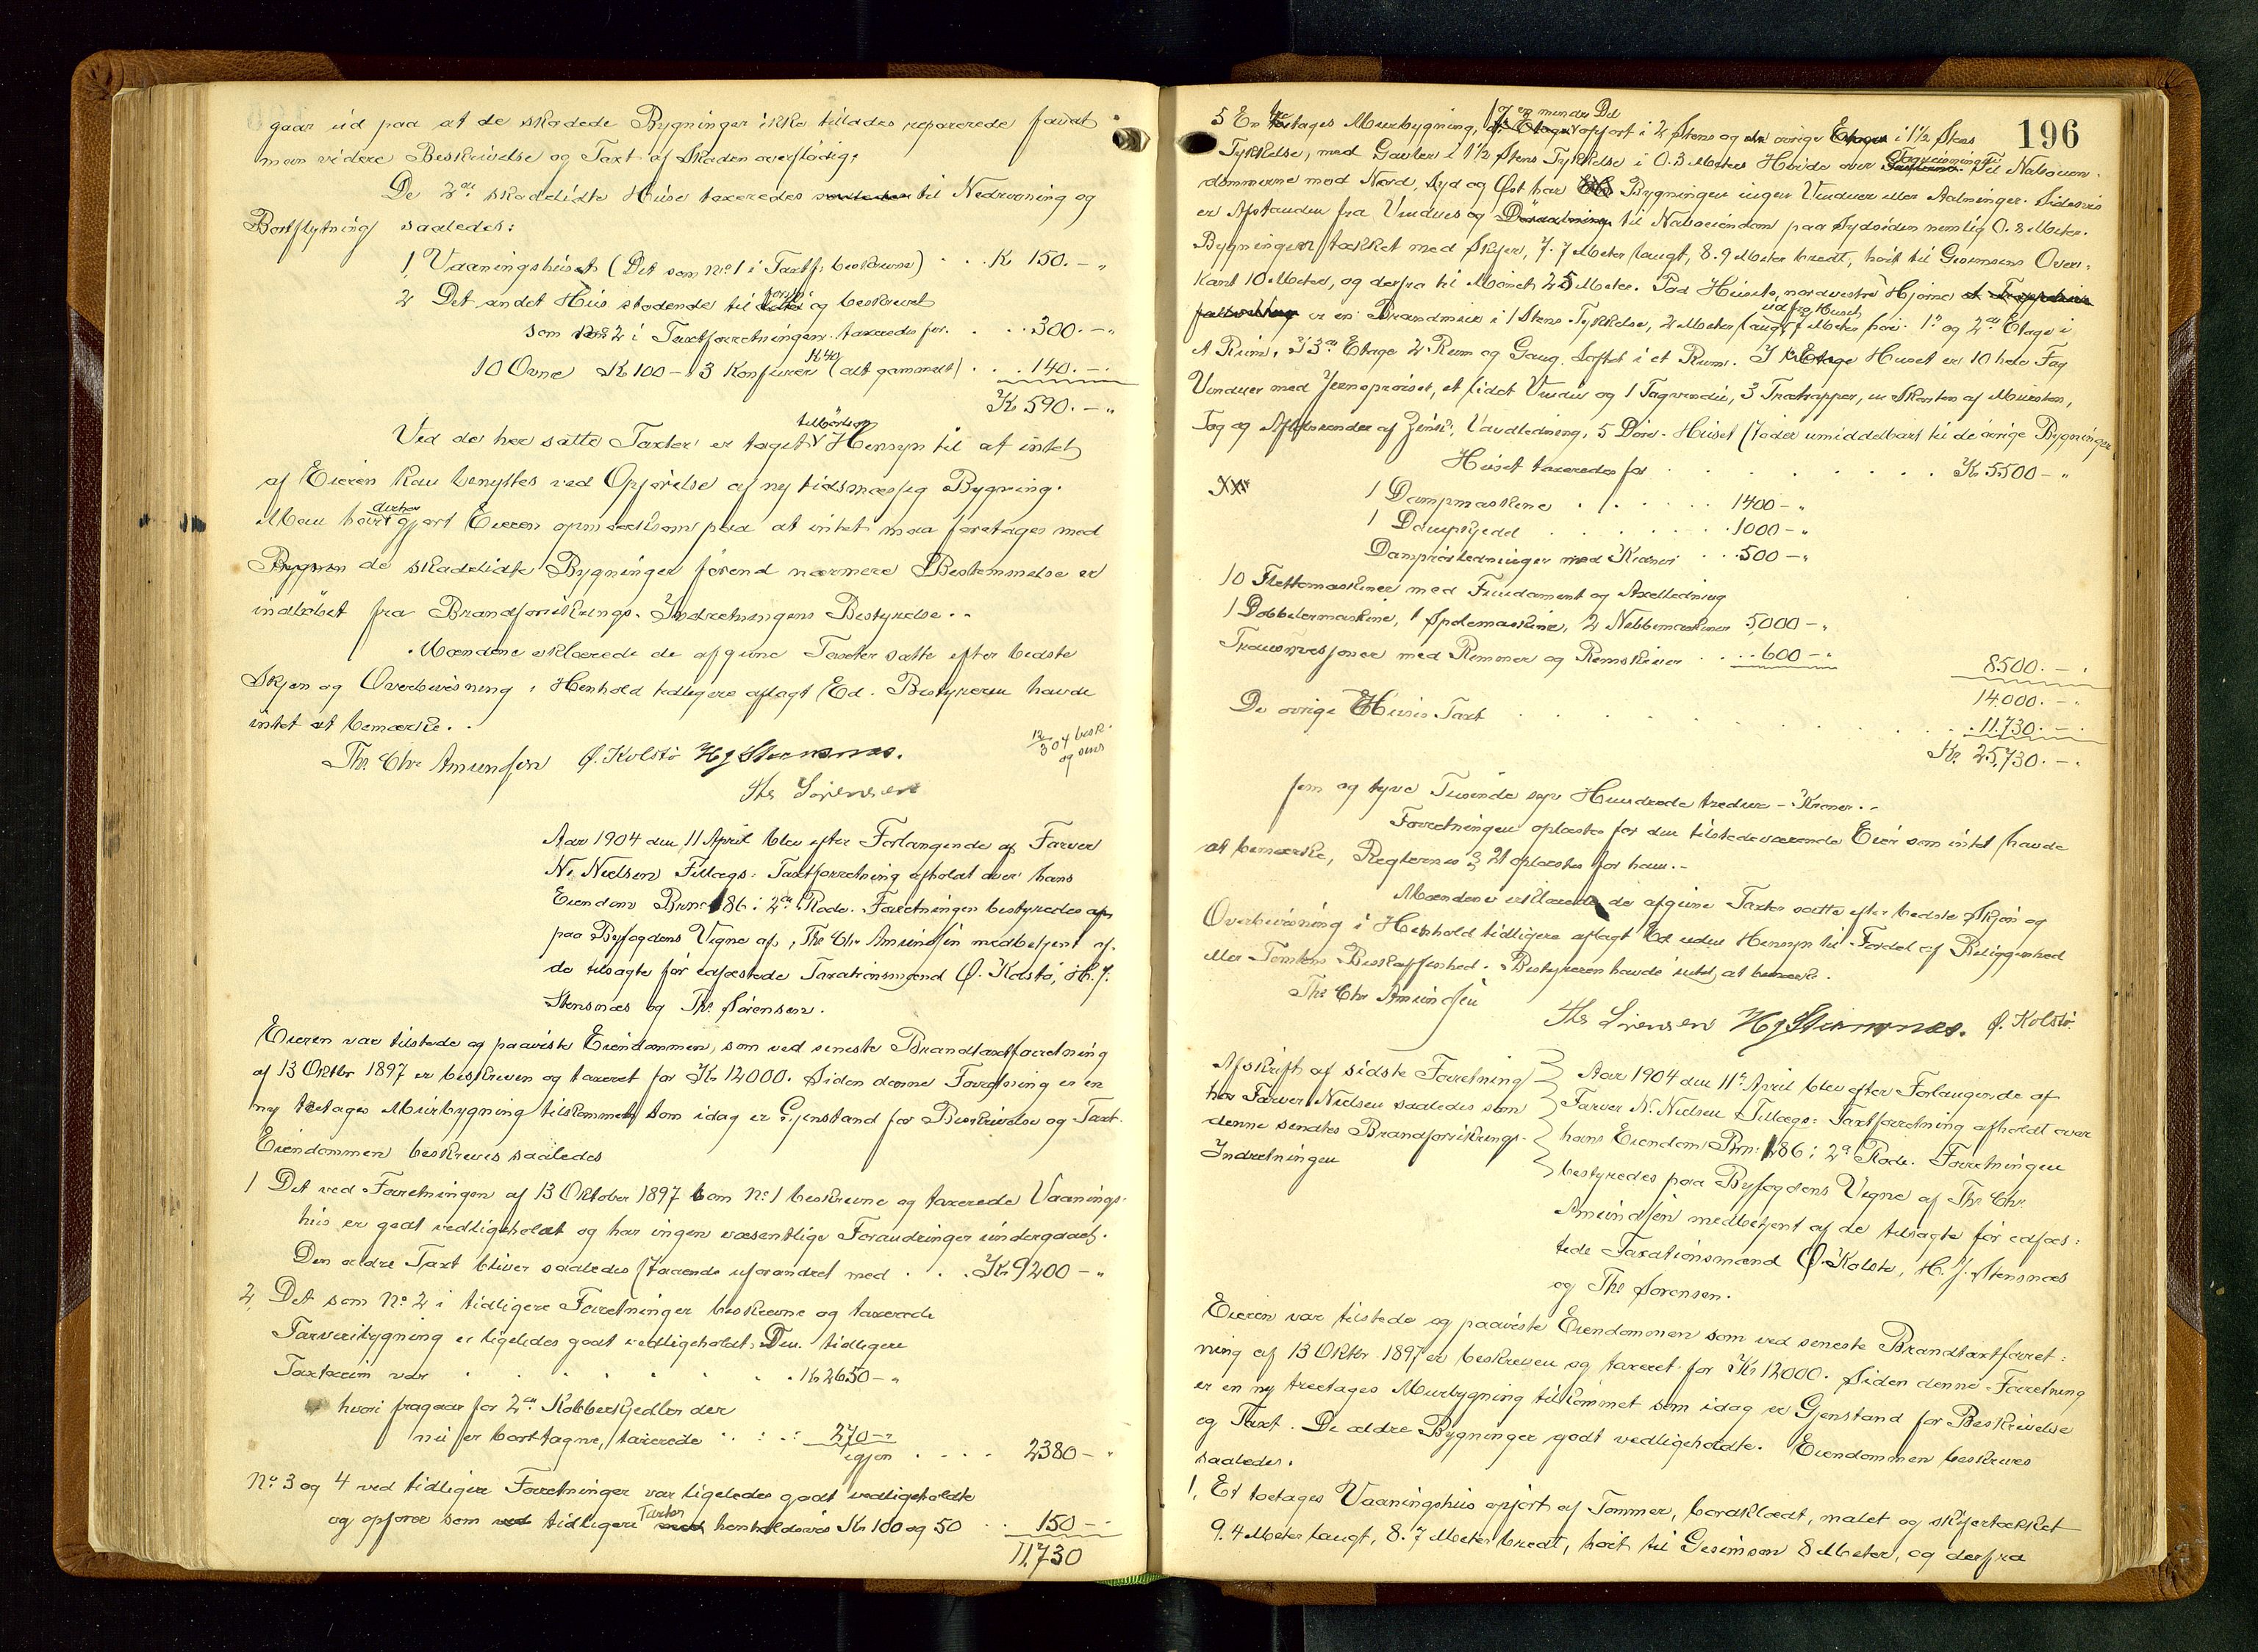 gaar ud paa at de skadede Bygninger ikke tillades reparerede fandt
man videre Beskrivelse og Taxt af Skaden overflödig;
De 2de skadelidte Huse taxeredes til Nedrivning og
Bortflytning saaledes:
1, Vaaningshuset (Det som No 1 i Taxtf. beskrevne) . . . K 150.-"
2 Det andet Hus stødende til og beskrevet
som No 2 i Taxtforretningen taxeredes for. . . . 300.-"
10 Ovne Kr 100 - 3 Konfurer K 40 (alt gammelt) . . . 140.-"
Kr 590.-"
Ved de her satte Taxter er taget tilbörligt Hensyn til at intet
af Eieren kan benyttes ved Opförelse af ny tidsmæssig Bygning.
Man har derhos gjort Eieren opmærksom paa at intet maa foretages med
de skadelidte Bygninger förend nærmere Bestemmelse er
indlöbet fra Brandforsikrings-Indretningens Bestyrelse. -
Mændene erklærede de afgivne Taxter satte efter bedste
Skjön og Overbevisning i Henhold tidligere aflagt Ed. Bestyreren havde
intet at bemærke. -
Ths Chr Amundsen Ø. Kolstö H J Stensnæs.
Ths Sörensen
12/3 04 besk. og sens
Aar 1904 den 11 April blev efter Forlangende af Farver
N. Nielsen Tillægs-Taxtforretning afholdt over hans
Eiendom Brno 186 i 2den Rode. Forretningen bestyredes af
paa Byfogdens Vegne af, Ths Chr Amundsen medbetjent af
de tilsagte før edfæstede Taxationsmænd Ø. Kolstö, H. J.
Stensnæs og Ths Sörensen.
Eieren var tilstede og paaviste Eiendommen, som ved seneste Brandtaxtforretning
af 13 Oktbr 1897 er beskreven og taxeret for Kr 12000. Siden denne Forretning er en
ny treetages Murbygning tilkommet som idag er Gjenstand for Beskrivelse og Taxt.
Eiendommen beskreves saaledes
1 Det ved Forretningen af 13 Oktober 1897 som No 1 beskrevne og taxerede Vaanings-
hus er godt vedligeholdt og har ingen væsentlige Forandringer undergaaet.
Den ældre Taxt bliver saaledes staaende uforandret med . . . Kr 9200-"
2, Det som No 2 i tidligere Forretninger beskrevne og taxerede
Farveribygning er ligeledes godt vedligeholdt. Den tidligere
Taxtsum var . . . . . . . Kr 2650-"
hvori fragaar for 2de Kobberkjedler der
nu er borttagne, taxerede . . . 270-"
igjen . . . . 2380-"
No 3 og 4 ved tidligere Forretninger var ligeledes godt vedligeholdte
og opförer som tidligere Taxter henholdsvis Kr 100 og 50 . . 150-"
11,730
196
5 En treetages Murbygning, en mindre Del opfört i 2 Stens og övrige i 1½ Stens
Tykkelse, med Gavler i 1½ Stens Tykkelse i 0.3 Meters Höide over Tagtækningen. Til Naboeien-
dommerne mod Nord, Syd og Øst har Bygningen ingen Vinduer eller Aabninger. Sidevis
er Afstanden fra Vindues og Döraabning til Naboeiendom paa Sydsiden nemlig 0.8 Meter.
Bygningen tækket med Skifer, 7.7 Meter langt, 8.9 Meter bredt, höit til Gesimsens Over-
kant 10 Meter, og derfra til Mönet 2.5 Meter. Ved Husets nordvestre Hjörne
er en Brandmur i 1 Stens Tykkelse, 2 Meter lang ud fra Huset, 7 Meter höi. 1e og 2en Etage i
et Rum, I 3de Etage 2 Rum og Gang. Loftet i et Rum. I Huset er 10 hele Fag
Vinduer med Jernsproiser, et lidet Vindu og 1 Tagvindu, 3 Trætrapper, en Skorsten af Mursten,
Tag og Afløbsrender af Zink, Vandledning, 5 Döre. Huset støder umiddelbart til de övrige Bygninger
Huset taxeredes for . . . . . . . Kr 5500-"
1 Dampmaskine . . . . . . 1400-"
1 Dampkjedel . . . . . . 1000-"
Damprörledninger med Kraner . . . 500-"
10 Flettemaskiner med Fundament og Axelledning
1 Dobbelermaskine, 1 Spolemaskine, 2 Nebbemaskiner 5,000-"
Transmissioner med Remmer og Remskiver . . . 600-"
8500.-"
14.000.-"
De övrige Huses Taxt . . . . . . . 11.730.-"
Kr. 25,730.-"
fem og tyve Tusinde syv Hundrede tredive - Kroner. -
Forretningen oplæstes for den tilstedeværende Eier som intet havde
at bemærke, Reglernes § 21 oplæstes for ham. -
Mændene erklærede de afgivne Taxter satte efter bedste Skjön og
Overbevisning i Henhold tidligere aflagt Ed uden Hensyn til Fordel af Beliggenhed
eller Tomtens Beskaffenhed. Bestyreren havde intet at bemærke.
Ths Chr Amundsen
Ths Sörensen H J Stensnæs. Ø. Kolstö
Afskrift af sidste Forretning
hos Farver Nielsen saaledes som
denne sendtes Brandforsikrings-
Indretningen
Aar 1904 den 11te April blev efter Forlangende af
Farver N. Nielsen Tillægs-Taxtforretning afholdt over
hans Eiendom Brno: 186 i 2de Rode. Forretningen
bestyredes paa Byfogdens Vegne af Ths Chr.
Amundsen medbetjent af de tilsagte för edfæs-
tede Taxationsmænd Ø. Kolstö, H. J. Stensnæs
og Ths Sörensen.
Eieren var tilstede og paaviste Eiendommen som ved seneste Brandtaxtforret-
ning af 13 Oktbr 1897 er beskreven og taxeret for Kr 12000. Siden denne Forretning
er en ny treetages Murbygning tilkommet som idag er Gjenstand for Beskrivelse
og Taxt. De ældre Bygninger godt vedligeholdte. Eiendommen beskreves
saaledes.
1, Et toetages Vaaningshus opfört af Tømmer, bordklædt, malet og skifertækket
9.4 Meter langt, 8.7 Meter bredt, höit til Gesimsen 8 Meter, og derfra